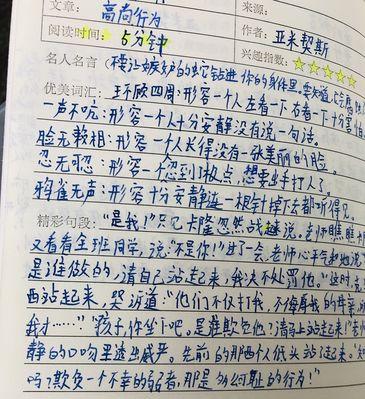 文章：高尚行为 来源：
阅读时间：5分钟 作者：亚米契斯
兴趣指数：☆☆☆☆☆
名人名言（不要让嫉妒的蛇钻进你的身体里，要知道，它会
优美词汇：环顾四周：形容一个人左看一下右看一下十分害怕。
一声不吭：形容一个人十分安静没有说一句话。
脸无赖相：形容一个人长得没有一张美丽的脸。
忍无可忍：形容一个忍到了极点，想要出手打人了。
鸦雀无声：形容十分安静连一根针掉下去都听得见。
精彩句段："是我！"只见卡隆忽然战 说。老师瞧瞧卡
又看看全班同学，说："不是你！"过了一会，老师心平气和地说
是谁做的，请自己站起来，我决不处罚他。"这时，
西站起来，哭诉道："他们不仅打我，不停辱我的母亲，
我才……""孩子，你坐下吧。是谁欺负他？请马上站起来！"老
静的口吻里透出威严。先前的那四个人低头站了起来。
吗？欺负一个不幸的弱者，那是多么可耻的行为！"